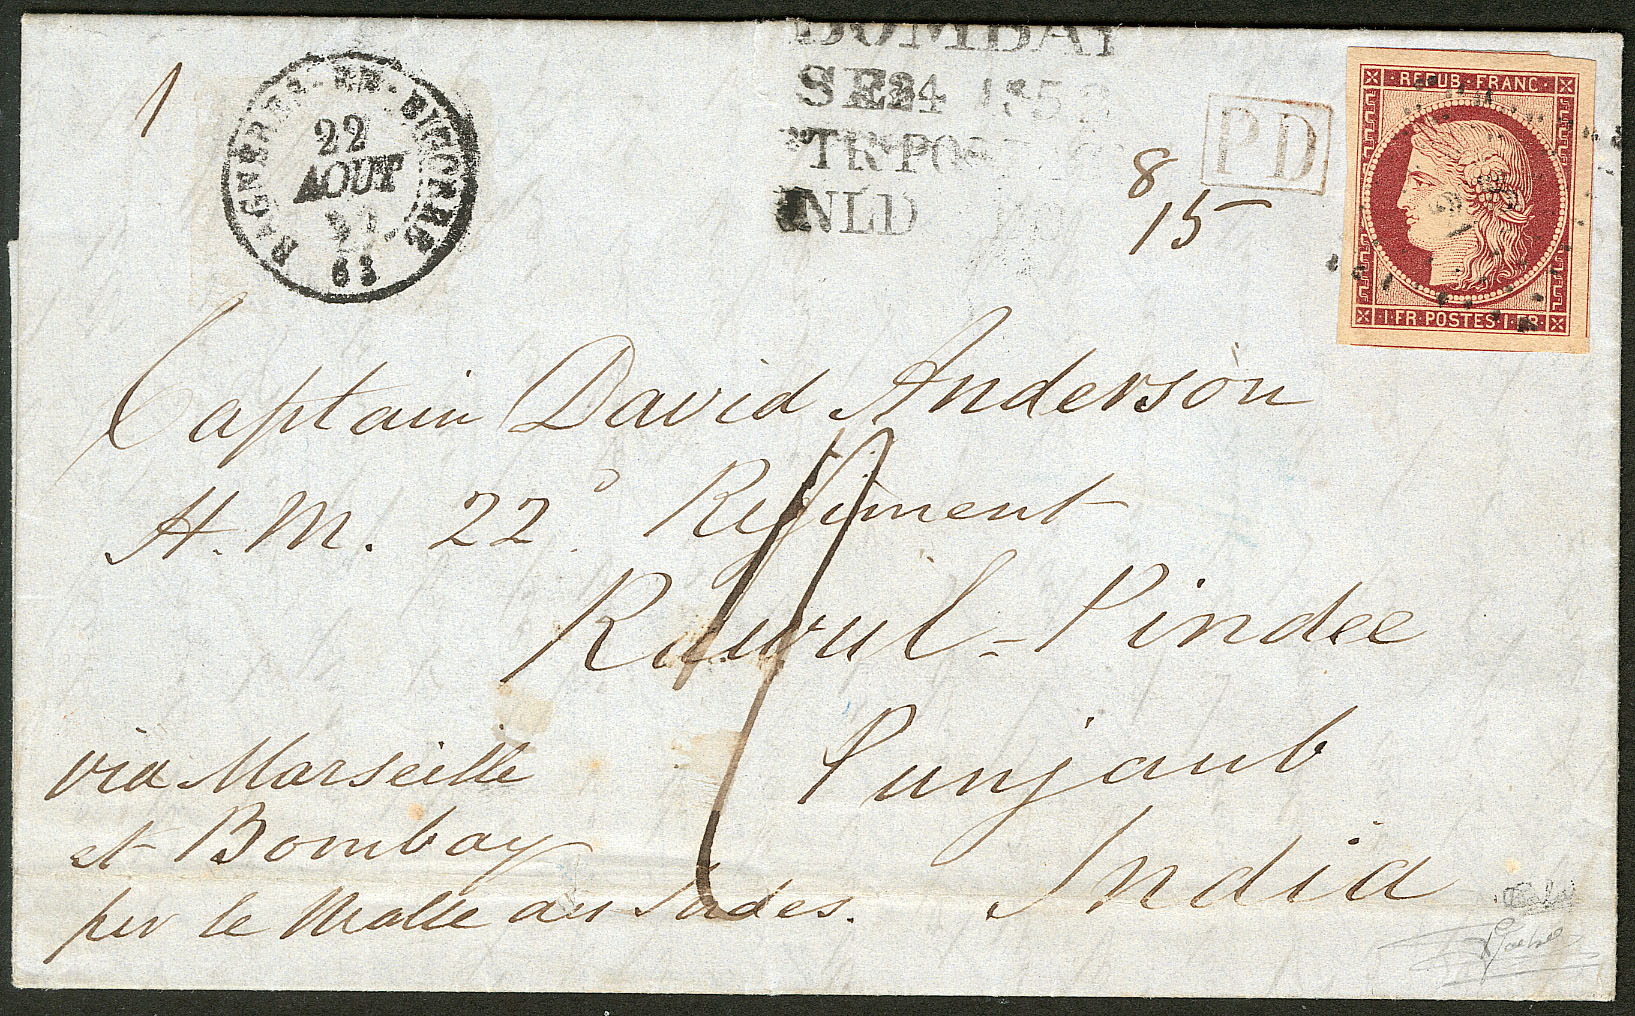 1
BAGNERES-EN-BIGORRE
22
AOUT
63
BOMBAY
SE 24 185
NLD
PD
8/15
REPUB·FRANC·
·1·FR·POSTES·1·FR·
Captain David Anderson
H. M. 22d Regiment
Rawul-Pindee
Punjaub
India
via Marseille
et Bombay
per le Malle des Indes.